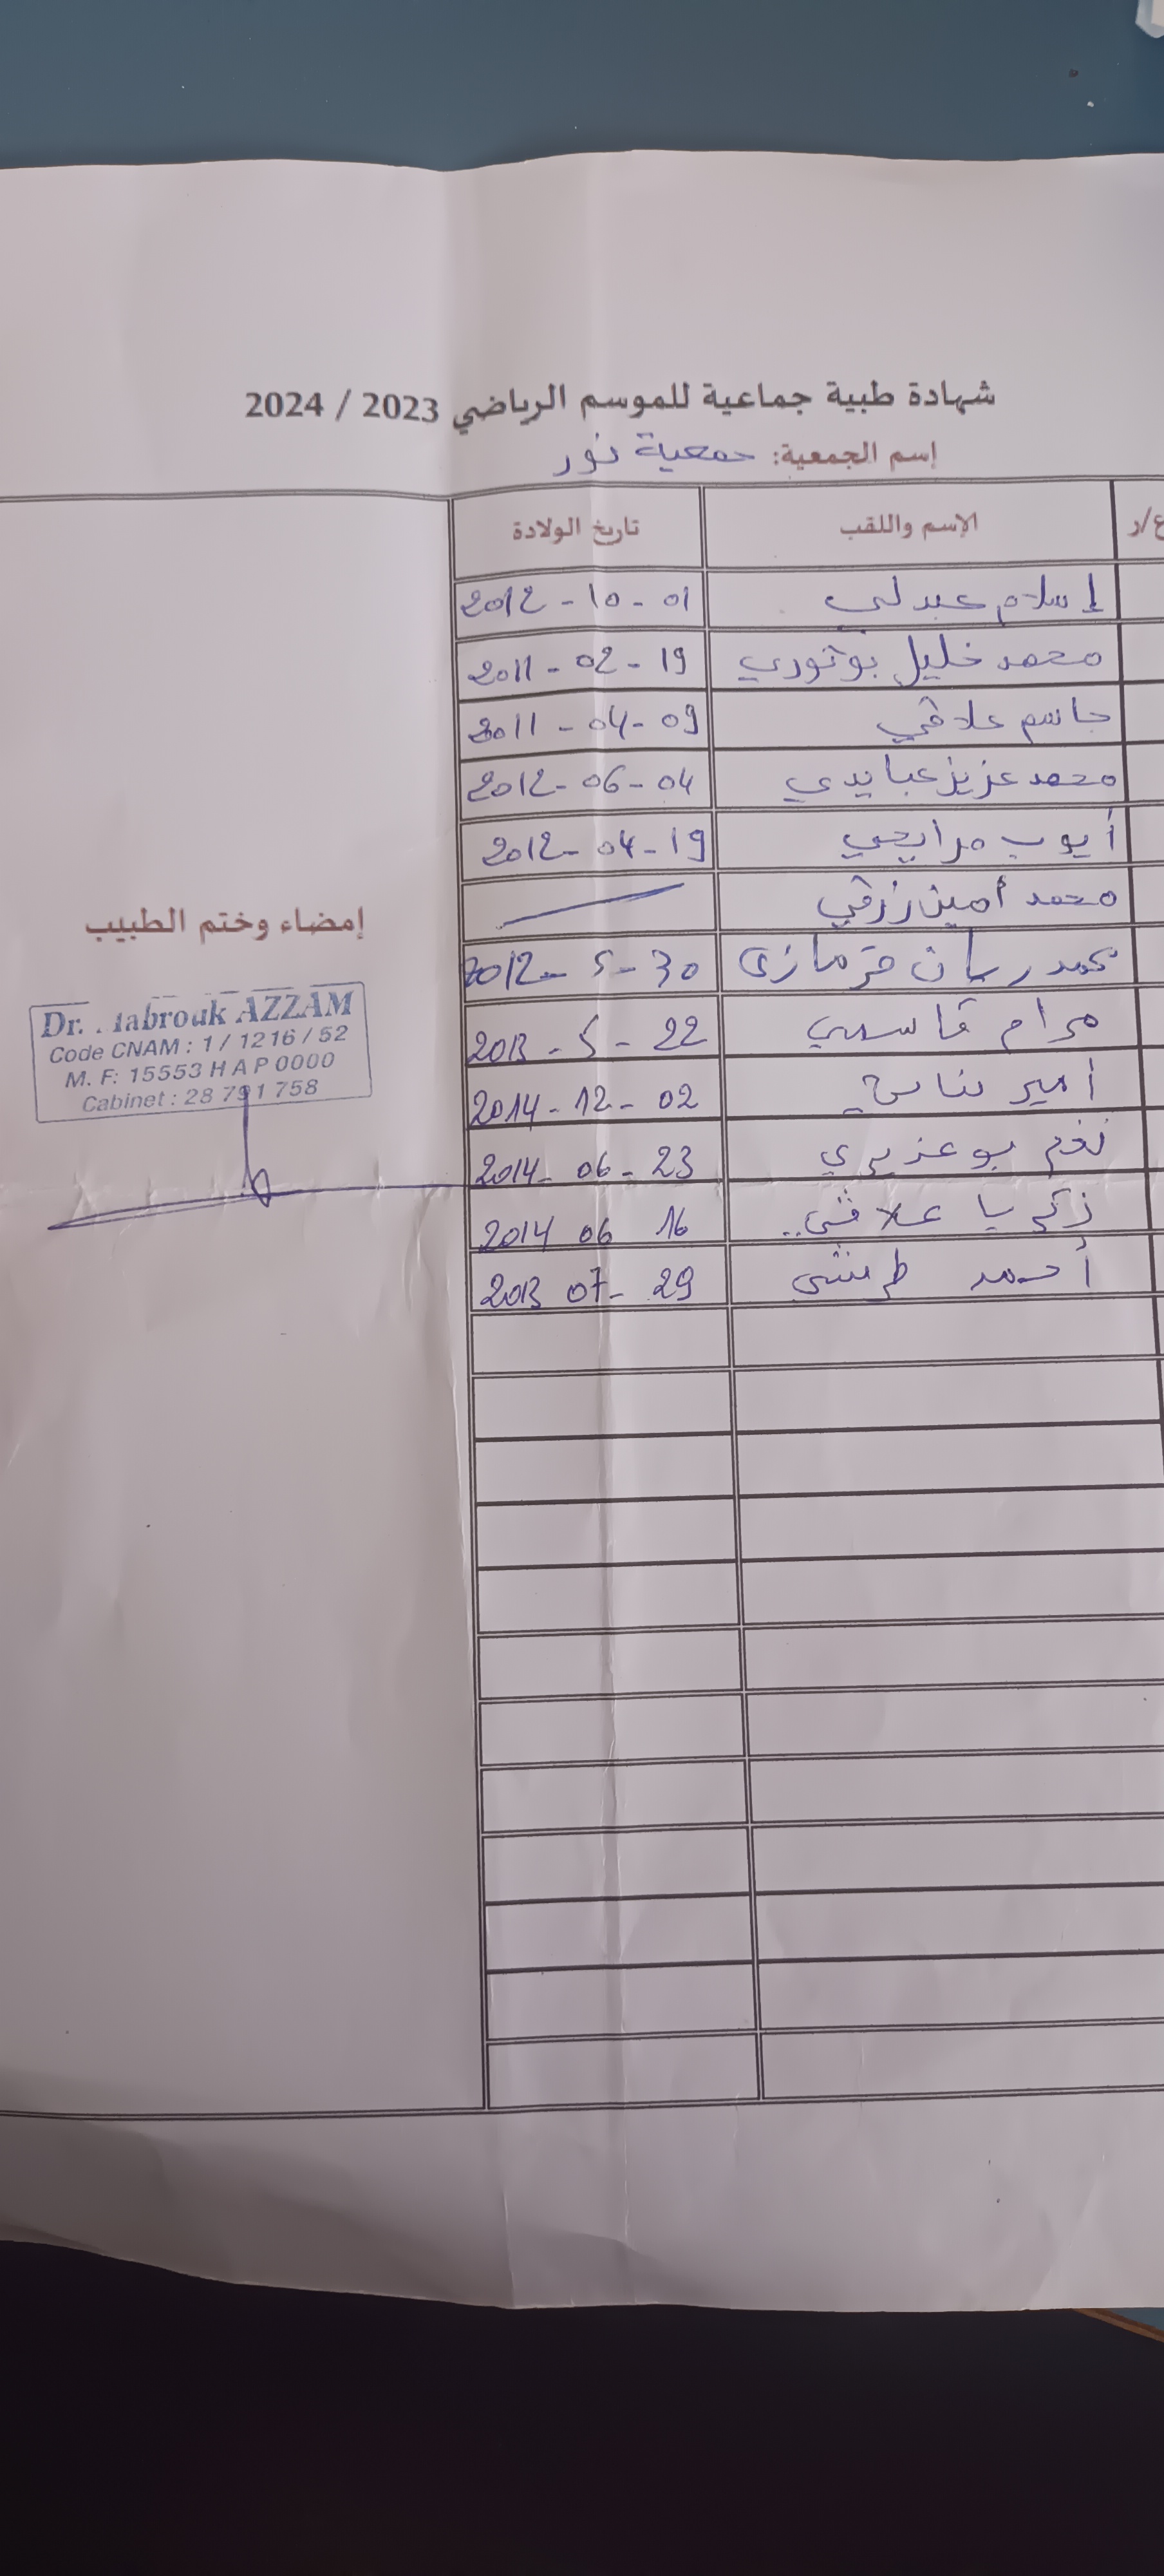 شهادة طبية جماعية للموسم الرياضي 2023 / 2024
إسم الجمعية: جمعية نور
ع/ر الإسم واللقب تاريخ الولادة
إسلام عبدلي 2012 - 10 - 01
محمد خليل بوثوري 2011 - 02 - 19
جاسم علاقي 2011 - 04 - 09
محمد عزيز عبايدي 2012 - 06 - 04
أيوب مرايحي 2012 - 04 - 19
محمد أمين زرقي
محمد ريان قرمازي 2012 - 5 - 30
مرام قاسمي 2013 - 5 - 22
أمير 2014 - 12 - 02
نغم بوعزيزي 2014 - 06 - 23
زكريا علاقي 2014 06 16
أحمد 2013 07 - 29
إمضاء وختم الطبيب
Dr. Mabrouk AZZAM
Code CNAM : 1 / 1216 / 52
M. F: 15553 H A P 0000
Cabinet : 28 791 758